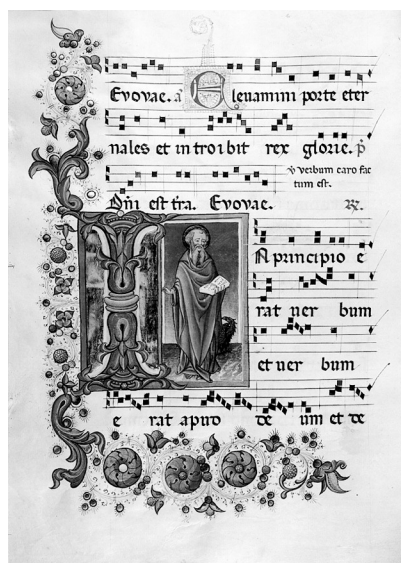 Evovae. a̅ Elevamini porte eter
nales et introibit rex glorie. p̅
℣ verbum caro fac
tum est.
Dn̅i est t̅ra. Evovae. ℟.
IN principio e
rat uer bum
et uer bum
e rat apud de um et de